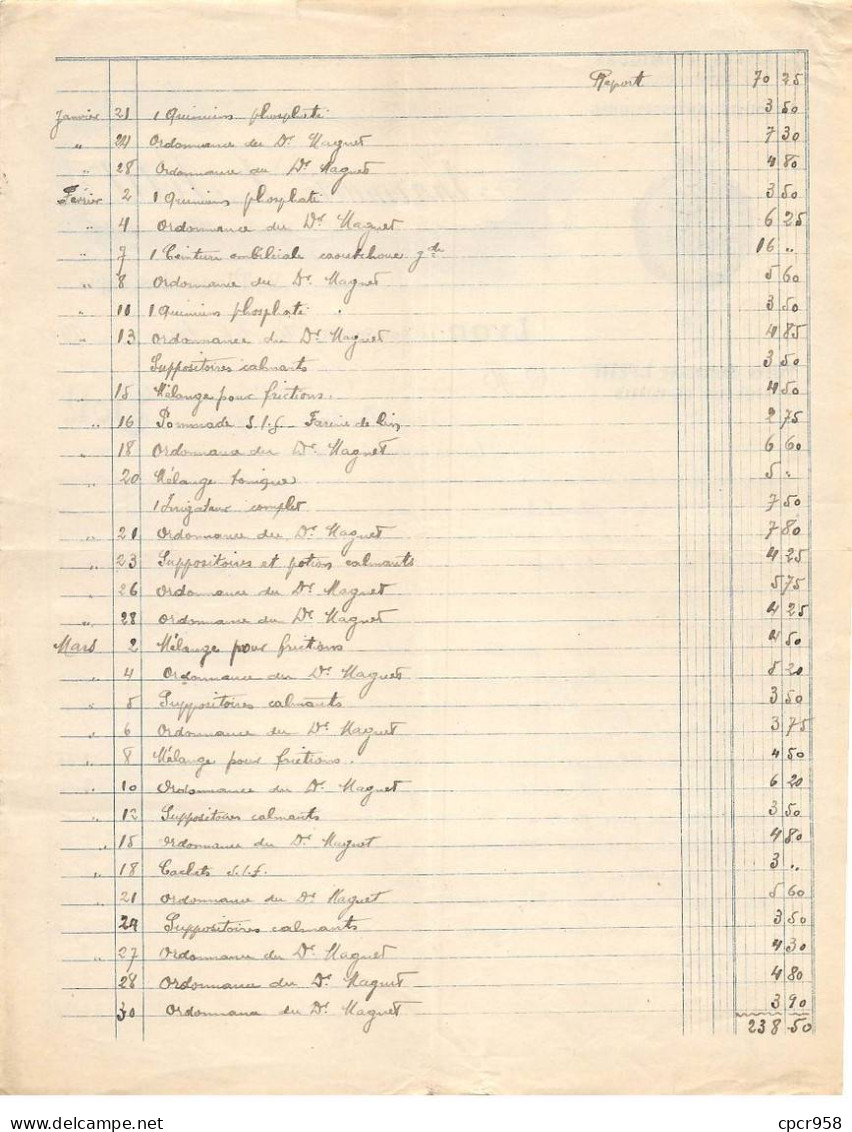 Report 70 25
Janvier 21 1 Quinium phosphaté 3 50
" 24 Ordonnance du Dr Magnet 7 30
" 28 Ordonnance du Dr Magnet 4 80
Février 2 1 Quinium phosphaté 3 50
" 4 Ordonnance du Dr Magnet 6 25
" 7 1 Ceinture ombilicale caoutchouc gde 16 "
" 8 Ordonnance du Dr Magnet 5 60
" 10 1 Quinium phosphaté 3 50
" 13 Ordonnance du Dr Magnet 4 85
Suppositoires calmants 3 50
" 15 Mélange pour frictions. 4 50
" 16 Pommade S.l.f. Farine de lin 2 75
" 18 Ordonnance du Dr Magnet 6 60
" 20 Mélange tonique 5 "
1 Irrigateur complet 7 50
" 21 Ordonnance du Dr Magnet 7 80
" 23 Suppositoires et potion calmants 4 25
" 26 Ordonnance du Dr Magnet 5 75
" 28 Ordonnance du Dr Magnet 4 25
Mars 2 Mélange pour frictions 4 50
" 4 Ordonnance du Dr Magnet 5 20
" 5 Suppositoires calmants 3 50
" 6 Ordonnance du Dr Magnet 3 75
" 8 Mélange pour frictions. 4 50
" 10 Ordonnance du Dr Magnet 6 20
" 12 Suppositoires calmants 3 50
" 15 Ordonnance du Dr Magnet 4 80
" 18 Cachets S.l.f. 3 "
" 21 Ordonnance du Dr Magnet 5 60
24 Suppositoires calmants 3 50
" 27 Ordonnance du Dr Magnet 4 30
28 Ordonnance du Dr Magnet 4 80
30 Ordonnance du Dr Magnet 3 90
238 50
cpcr958